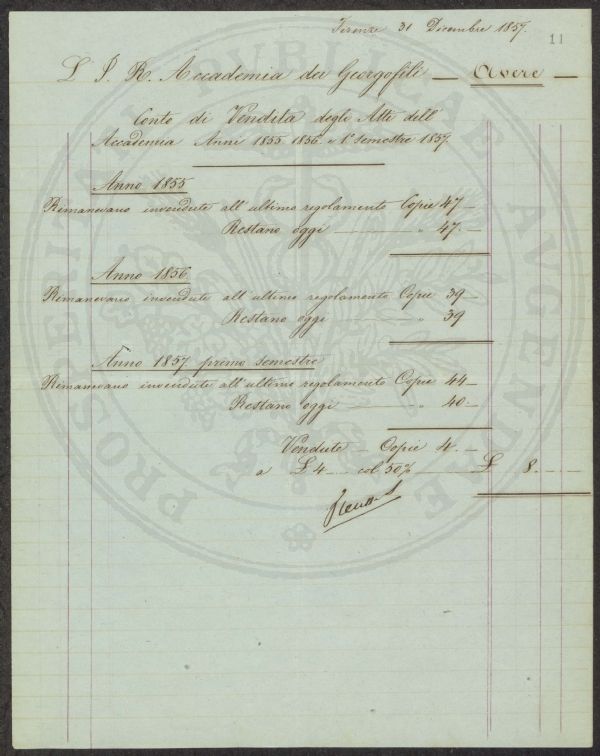 Firenze 31 Dicembre 1857.
11
L'I. R. Accademia dei Georgofili — Avere —
Conto di Vendita degli Atti dell'
Accademia Anni 1855. 1856. e 1º semestre 1857.
Anno 1855
Rimanevano invendute all'ultimo regolamento Copie 47 —
Restano oggi — " 47. —
Anno 1856
Rimanevano invendute all'ultimo regolamento Copie 39 —
Restano oggi — " 39
Anno 1857 primo semestre
Rimanevano invendute all'ultimo regolamento Copie 44 —
Restano oggi — " 40 —
Vendute — Copie 4. —
a £ 4 — col 50% — £ 8. —
PROSPERITATI PUBLICAE AUGENDAE